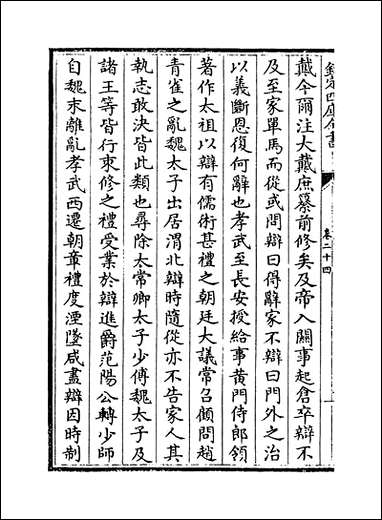 欽定四庫全書
卷二十四
戴今爾注大戴庶纂前修矣及帝入關事起倉卒辯不
及至家單馬而從或問辯曰得辭家不辯曰門外之治
以義斷恩復何辭也孝武至長安授給事黄門侍郎領
著作太祖以辯有儒術甚禮之朝廷大議常召顧問趙
青雀之亂魏太子出居渭北辯時隨從亦不告家人其
執志敢決皆此類也尋除太常卿太子少傅魏太子及
諸王等皆行束修之禮受業於辯進爵范陽公轉少師
自魏末離亂孝武西遷朝章禮度湮墜咸盡辯因時制